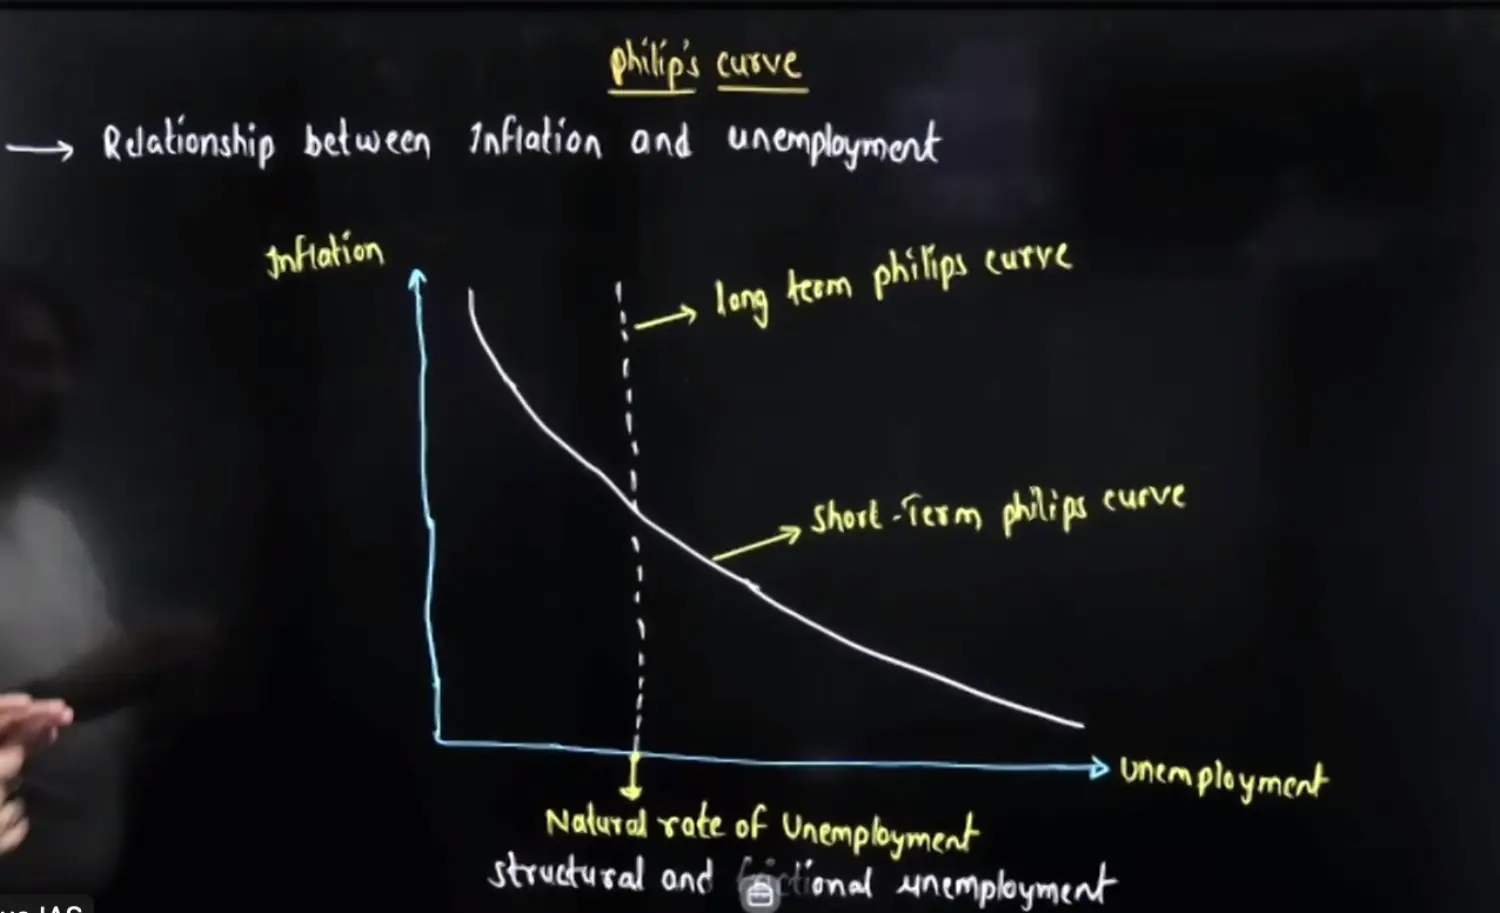 philip's curve
→ Relationship between Inflation and unemployment
Inflation
→ long term philips curve
→ short-Term philips curve
unemployment
Natural rate of Unemployment
structural and frictional unemployment
IAS